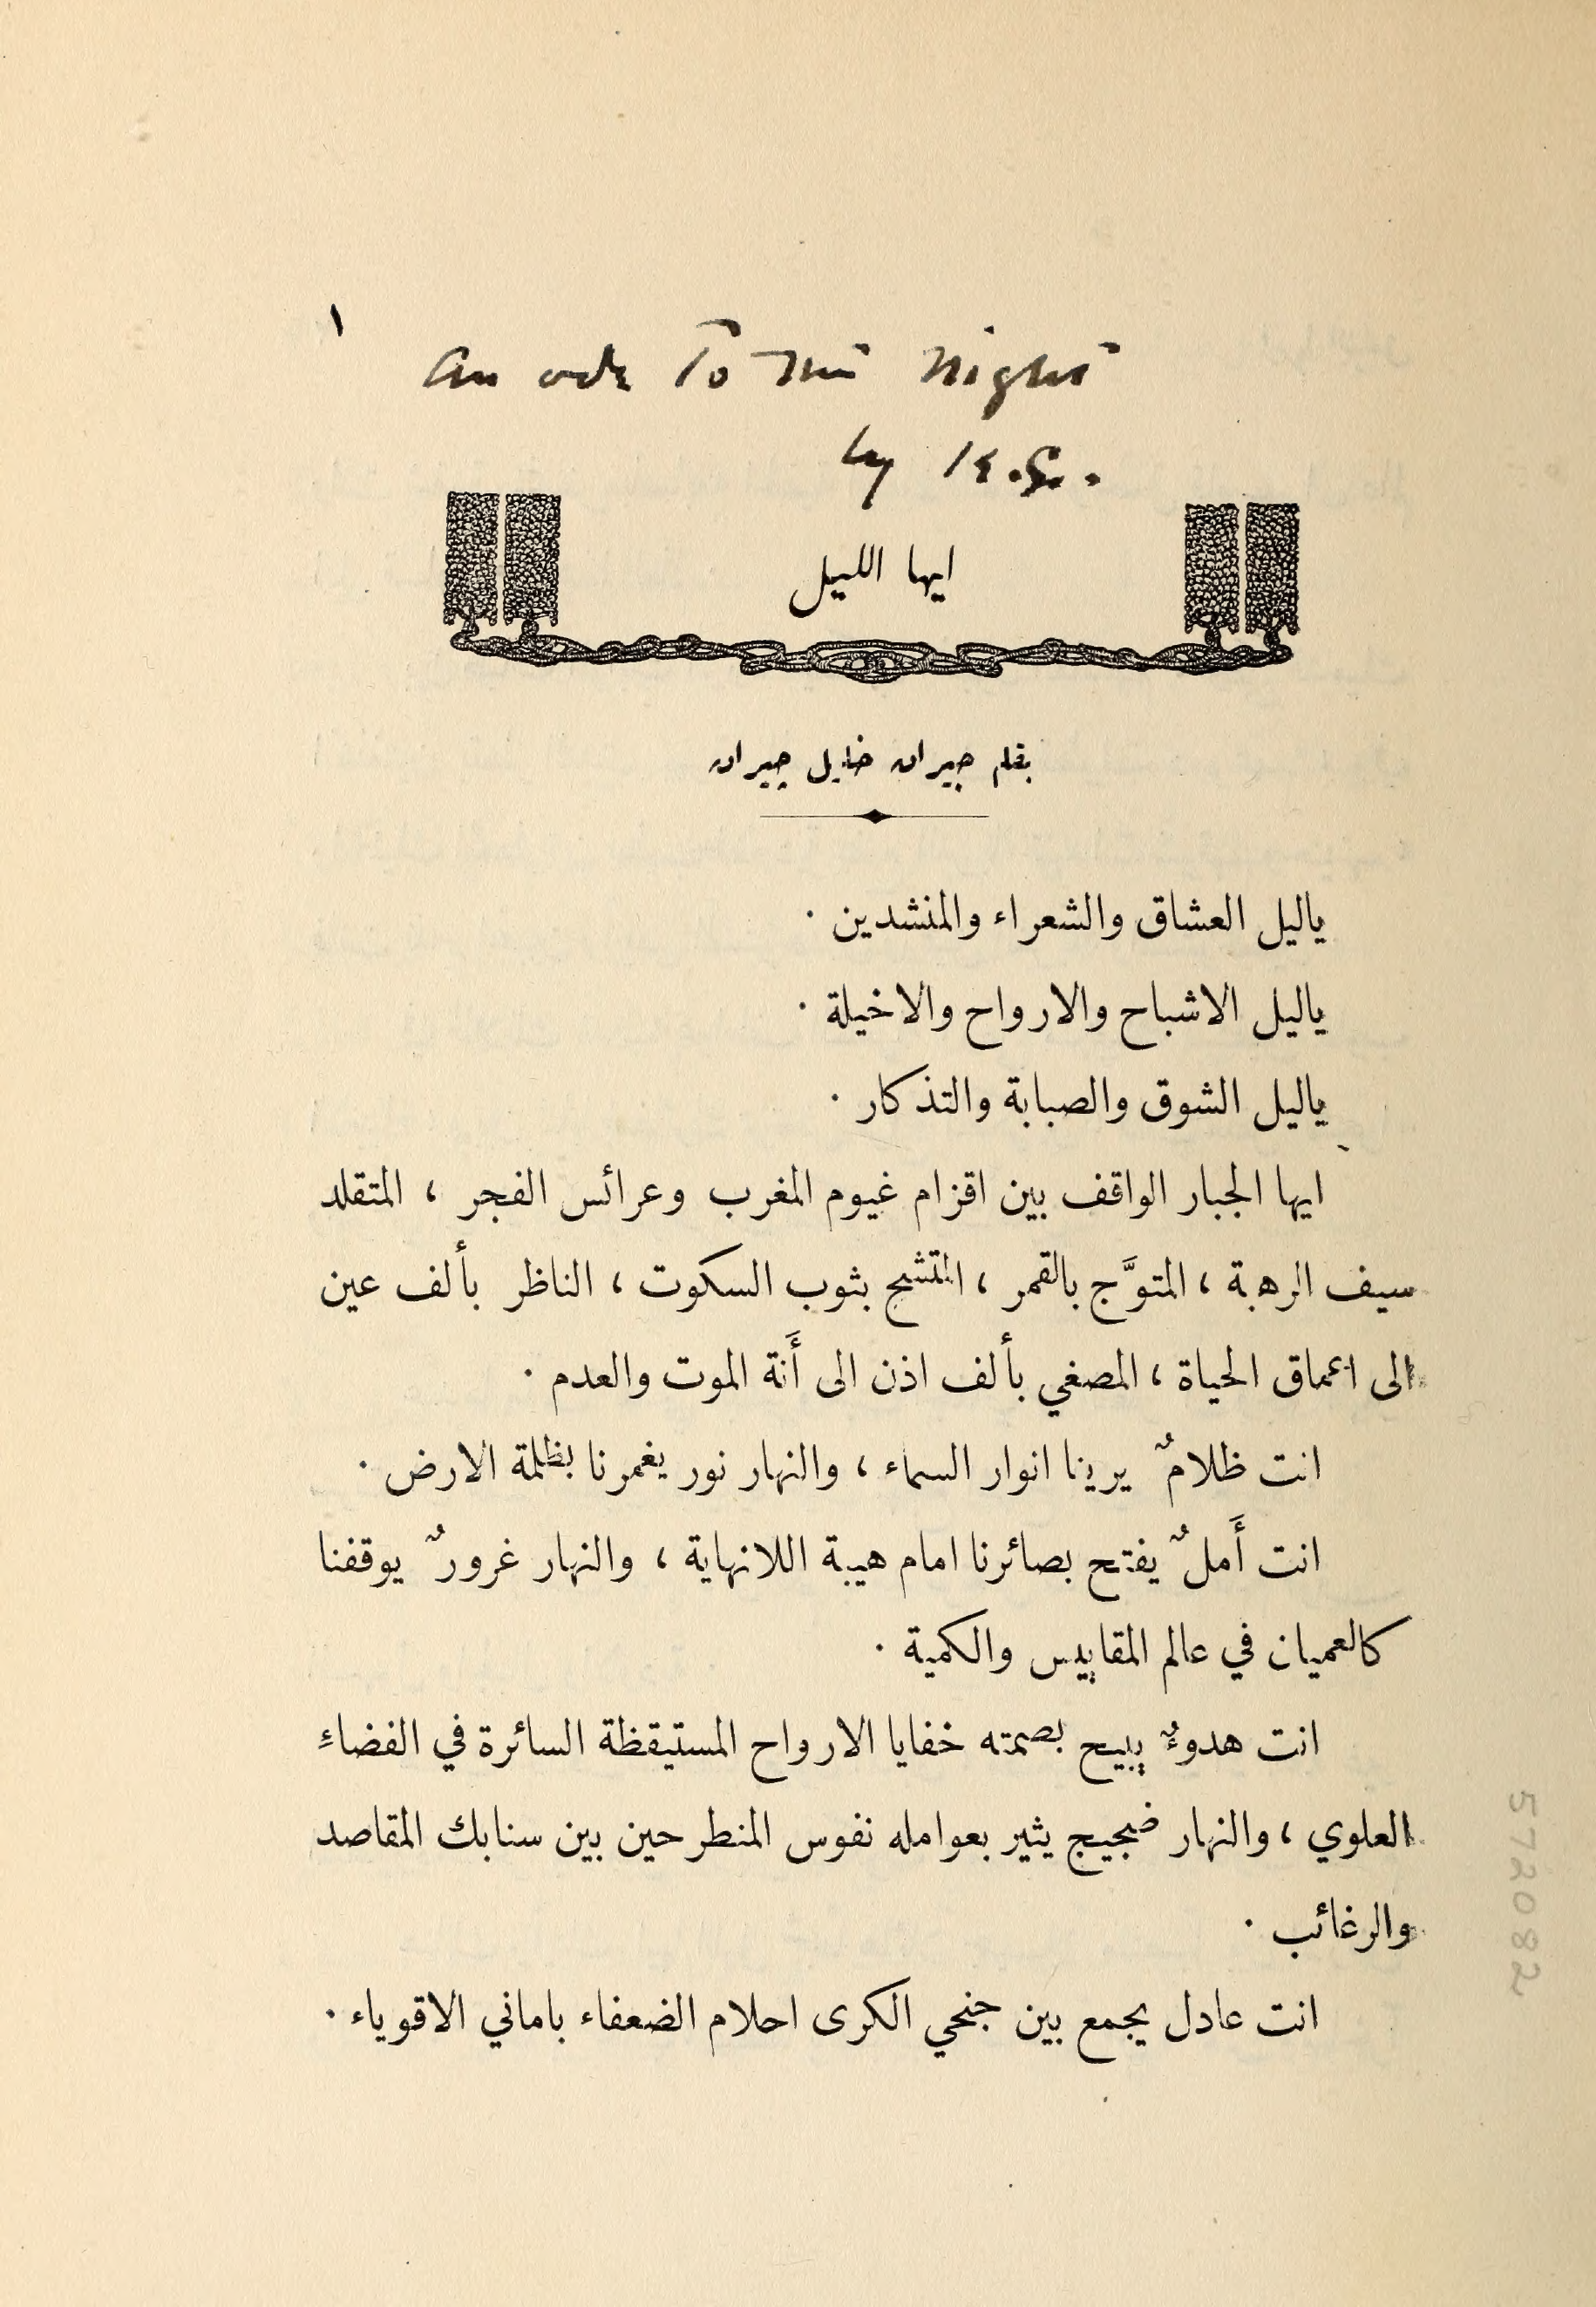 ١
An ode To The Night
by K.G.
ايها الليل
بقلم جبران خليل جبران
ياليل العشاق والشعراء والمنشدين ·
ياليل الاشباح والارواح والاخيلة ·
ياليل الشوق والصبابة والتذكار ·
ايها الجبار الواقف بين اقزام غيوم المغرب وعرائس الفجر ، المتقلد
سيف الرهبة ، المتوَّج بالقمر ، المتشح بثوب السكوت ، الناظر بألف عين
الى اعماق الحياة ، المصغي بألف اذن الى أَنة الموت والعدم ·
انت ظلامٌ يرينا انوار السماء ، والنهار نور يغمرنا بظلمة الارض ·
انت أَملٌ يفتح بصائرنا امام هيبة اللانهاية ، والنهار غرورٌ يوقفنا
كالعميان في عالم المقاييس والكمية ·
انت هدوءٌ يبيح بصمته خفايا الارواح المستيقظة السائرة في الفضاءِ
العلوي ، والنهار ضجيج يثير بعوامله نفوس المنطرحين بين سنابك المقاصد
والرغائب ·
انت عادل يجمع بين جنحي الكرى احلام الضعفاء باماني الاقوياء ·
572082